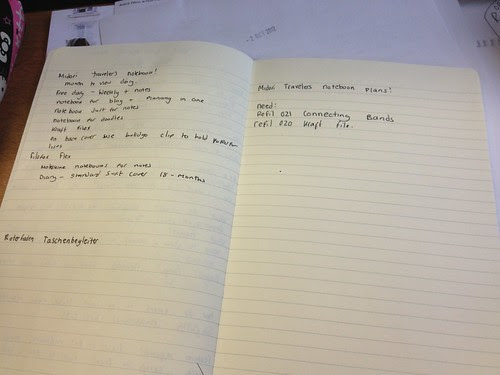 Midori travelers notebook!
month to view diary.
Free diary - weekly + notes
notebook for blog + planning in one
notebook just for notes
notebook for doodles
kraft files
on back cover use bulldog clip to hold
lists
Filofax Flex
Moleskine notebooks for notes
Diary - Standard soft cover 18-months
Roterfaden Taschenbegleiter
Midori Travelers notebook plans!
need:
Refil 021 Connecting Bands
refil 020 kraft file.